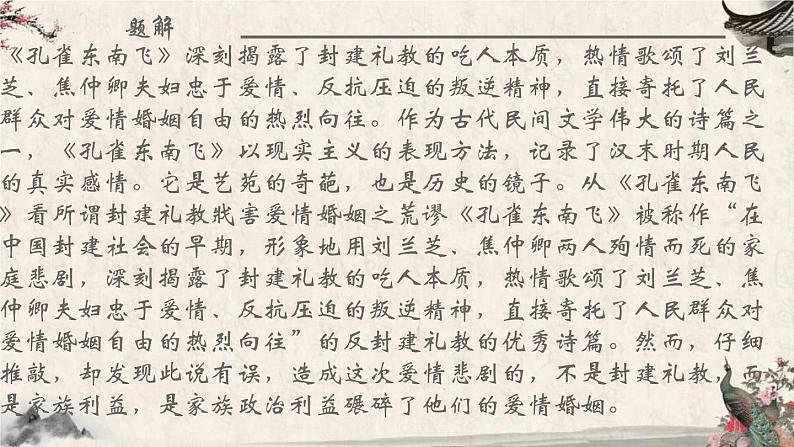 题解
《孔雀东南飞》深刻揭露了封建礼教的吃人本质，热情歌颂了刘兰
芝、焦仲卿夫妇忠于爱情、反抗压迫的叛逆精神，直接寄托了人民
群众对爱情婚姻自由的热烈向往。作为古代民间文学伟大的诗篇之
一，《孔雀东南飞》以现实主义的表现方法，记录了汉末时期人民
的真实感情。它是艺苑的奇葩，也是历史的镜子。从《孔雀东南飞
》看所谓封建礼教戕害爱情婚姻之荒谬《孔雀东南飞》被称作“在
中国封建社会的早期，形象地用刘兰芝、焦仲卿两人殉情而死的家
庭悲剧，深刻揭露了封建礼教的吃人本质，热情歌颂了刘兰芝、焦
仲卿夫妇忠于爱情、反抗压迫的叛逆精神，直接寄托了人民群众对
爱情婚姻自由的热烈向往”的反封建礼教的优秀诗篇。然而，仔细
推敲，却发现此说有误，造成这次爱情悲剧的，不是封建礼教，而
是家族利益，是家族政治利益碾碎了他们的爱情婚姻。